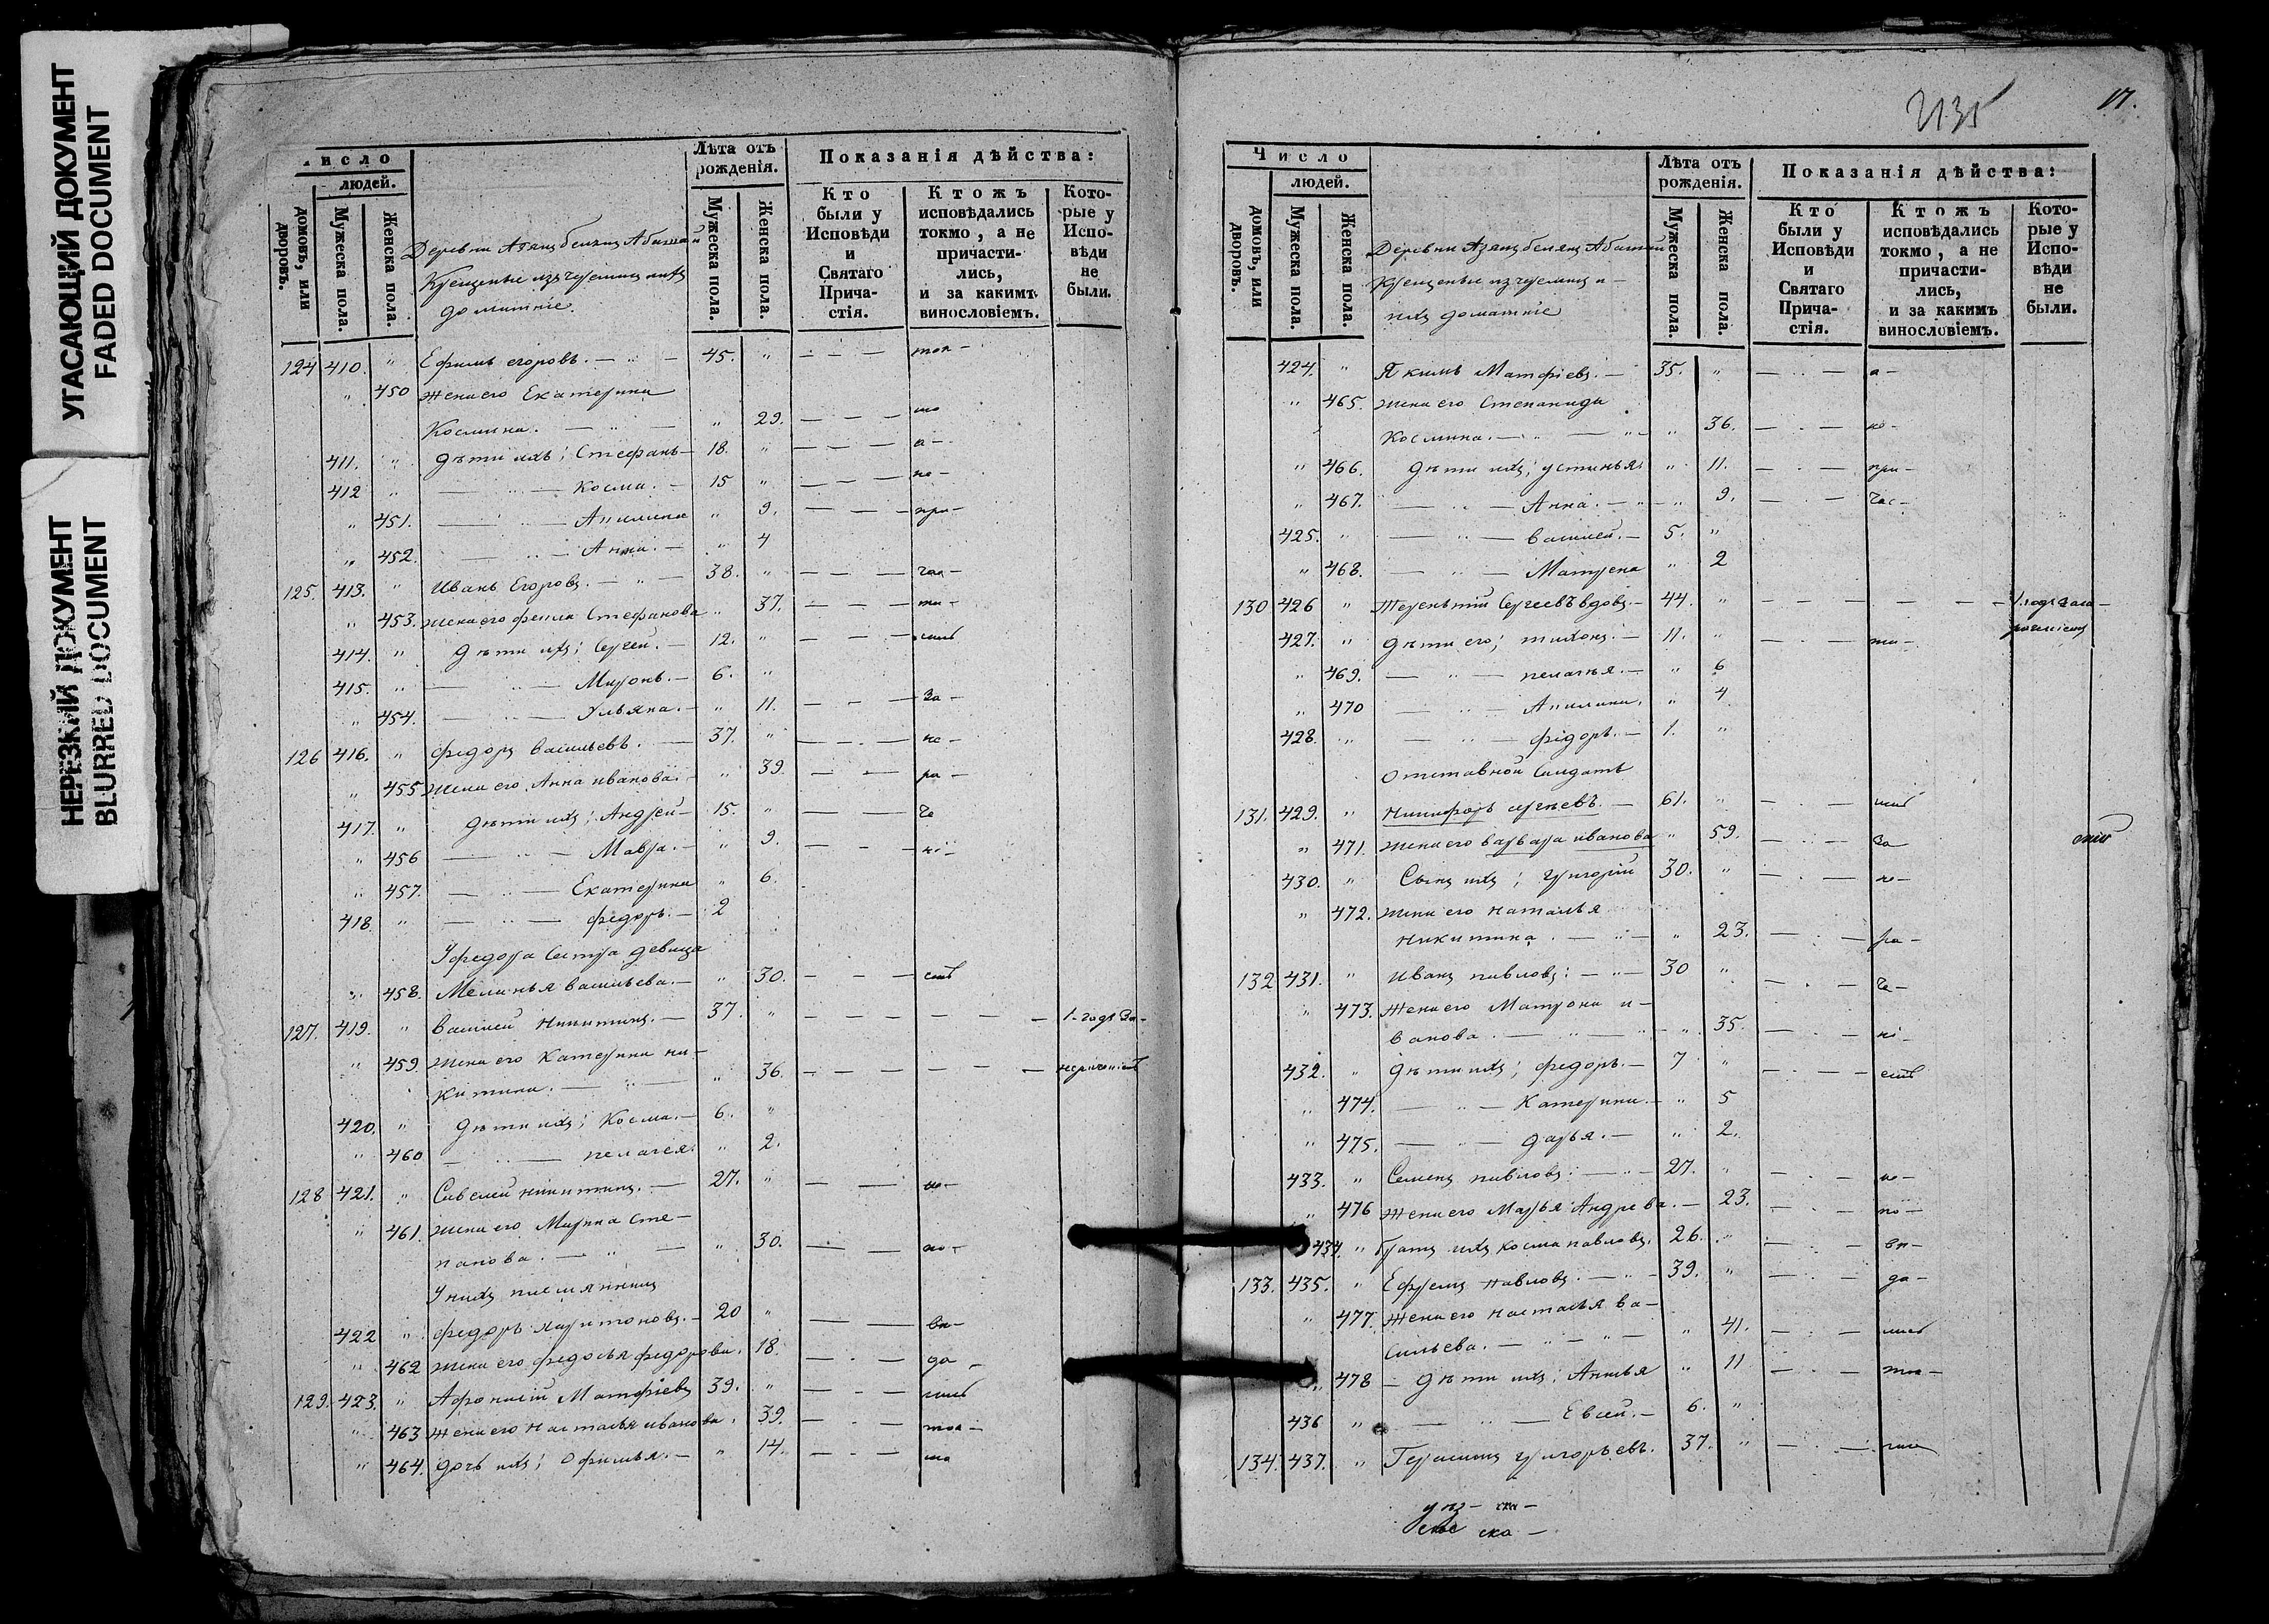 УГАСАЮЩИЙ ДОКУМЕНТ
FADED DOCUMENT
НЕРЕЗКИЙ ДОКУМЕНТ
BLURRED DOCUMENT
Число
людей.
домовъ, или дворовъ.
Мужеска пола.
Женска пола.
Лѣта отъ рожденія.
Мужеска пола.
Женска пола.
Показанія дѣйства:
Кто были у Исповѣди и Святаго Прича-стія.
Ктожъ исповѣдались токмо, а не причасти-лись, и за какимъ винословіемъ.
Кото-рые у Испо-вѣди не были.
Деревни
Крещеные изъ черемисъ
домашніе.
124 410. " Ефимъ егоровъ. 45. "
" 450 жена его Екатерина
Космина. " 29.
411. " дѣти ихъ; Стефанъ 18. " а-
412 " Косма. 15 " не-
" 451. Акилина " 9. при-
" 452. Анна. " 4
125. 413. " Иванъ Егоровъ. 38. " час-
" 453. жена его фекла Стефанова " 37. ти-
414. " дѣти ихъ; Сергей. 12. "
415. " Миронъ. 6. "
" 454. Ульяна. " 11. За-
126 416. " федоръ васильевъ. 37. " не-
455 жена его Анна иванова " 39. ра-
417. " дѣти ихъ; Андрей 15. " че
" 456 Мавра. " 9. ні-
" 457. Екатерина " 6.
418 " федоръ. 2
У федора сестра девица
" 458. Меланья васильева. " 30. емъ
127. 419. " василей никитинъ. 37. " 1-годъ За-
" 459 жена его Катерина ни-
китина. " 36. нераченіемъ
420. " дѣти ихъ; Косма. 6. "
" 460 пелагея " 2.
128 421. " Савелей никитинъ. 27. "
" 461. жена его Марина сте-
панова. " 30. по-
У нихъ племянникъ
422 " федоръ харитоновъ. 20 "
" 462 жена его федосья федорова. 18. да
129. 423. " Афонасій Матфіевъ 39. "
" 463 жена его Настасья иванова. 39.
" 464. дочь ихъ; Офимья. " 14.
2135
17.
Число
людей.
домовъ, или дворовъ.
Мужеска пола.
Женска пола.
Лѣта отъ рожденія.
Мужеска пола.
Женска пола.
Показанія дѣйства:
Кто были у Исповѣди и Святаго Прича-стія.
Ктожъ исповѣдались токмо, а не причасти-лись, и за какимъ винословіемъ.
Кото-рые у Испо-вѣди не были.
Деревни
Крещеные изъ черемисъ и
ихъ домашніе
424. " Якимъ Матфіевъ. 35. " а-
" 465. жена его Степанида
Космина. " 36. не-
" 466. дѣти ихъ; устинья " 11. при-
" 467. Анна. " 9. час-
425. " василей. 5. "
" 468. Матрена " 2
130 426 " Терентій Сергеевъ вдовъ. 44. "
427. " дѣти его; тихонъ. 11. " ти-
" 469. пелагья. " 6
" 470 Акилина. " 4
428. " фідоръ. 1. "
Отставной Солдатъ
131. 429. " Никифоръ 61. "
" 471. жена его варвара иванова " 59. За
430. " Сынъ ихъ; григорій 30. " не-
" 472. жена его наталья
никитина. " 23. ра-
132 431. " Иванъ павловъ. 30 " че-
" 473. жена его Матрона и-
ванова " 35. ні-
432. " дѣти ихъ; федоръ. 7 " емъ
" 474. Катерина. " 5
" 475. дарья. " 2.
433. " Семенъ павловъ 27. "
" 476 жена его Марья Андреева. 23. по-
434. " братъ ихъ косма павловъ. 26. "
133. 435. " Ефремъ павловъ. 39. " да-
" 477. жена его настасья ва-
сильева. " 41.
" 478 дѣти ихъ; " 11
436 " Евсей. 6. "
134. 437. " Герасимъ григорьевъ. 37. "